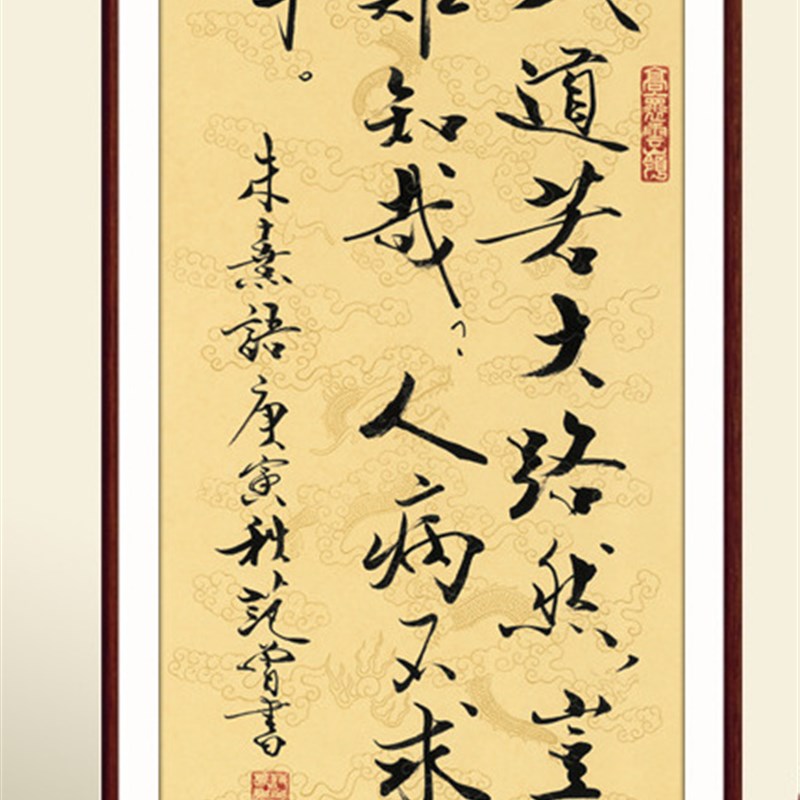 夫道若大路然,豈
難知哉?人病不求
耳。
朱熹語庚寅秋范曾書